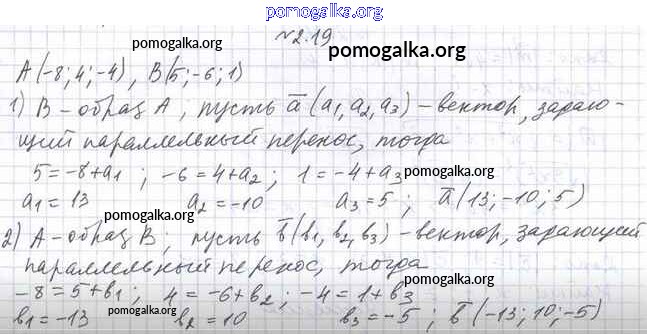 pomogalka.org
№2.19
pomogalka.org pomogalka.org
A(-8; 4; -4), B(5; -6; 1)
pomogalka.org
1) B - образ A, пусть a̅ (a₁, a₂, a₃) - вектор, задаю-
щий параллельный перенос, тогда
pomogalka.org
5 = -8 + a₁ ; -6 = 4 + a₂ ; 1 = -4 + a₃
a₁ = 13 a₂ = -10 a₃ = 5 ; a̅ (13; -10; 5)
pomogalka.org pomogalka.org
2) A - образ B; пусть b̅ (b₁, b₂, b₃) - вектор, задающий
параллельный перенос, тогда
pomogalka.org
-8 = 5 + b₁ ; 4 = -6 + b₂ ; -4 = 1 + b₃
pomogalka.org
b₁ = -13 b₂ = 10 b₃ = -5 ; b̅ (-13; 10; -5)